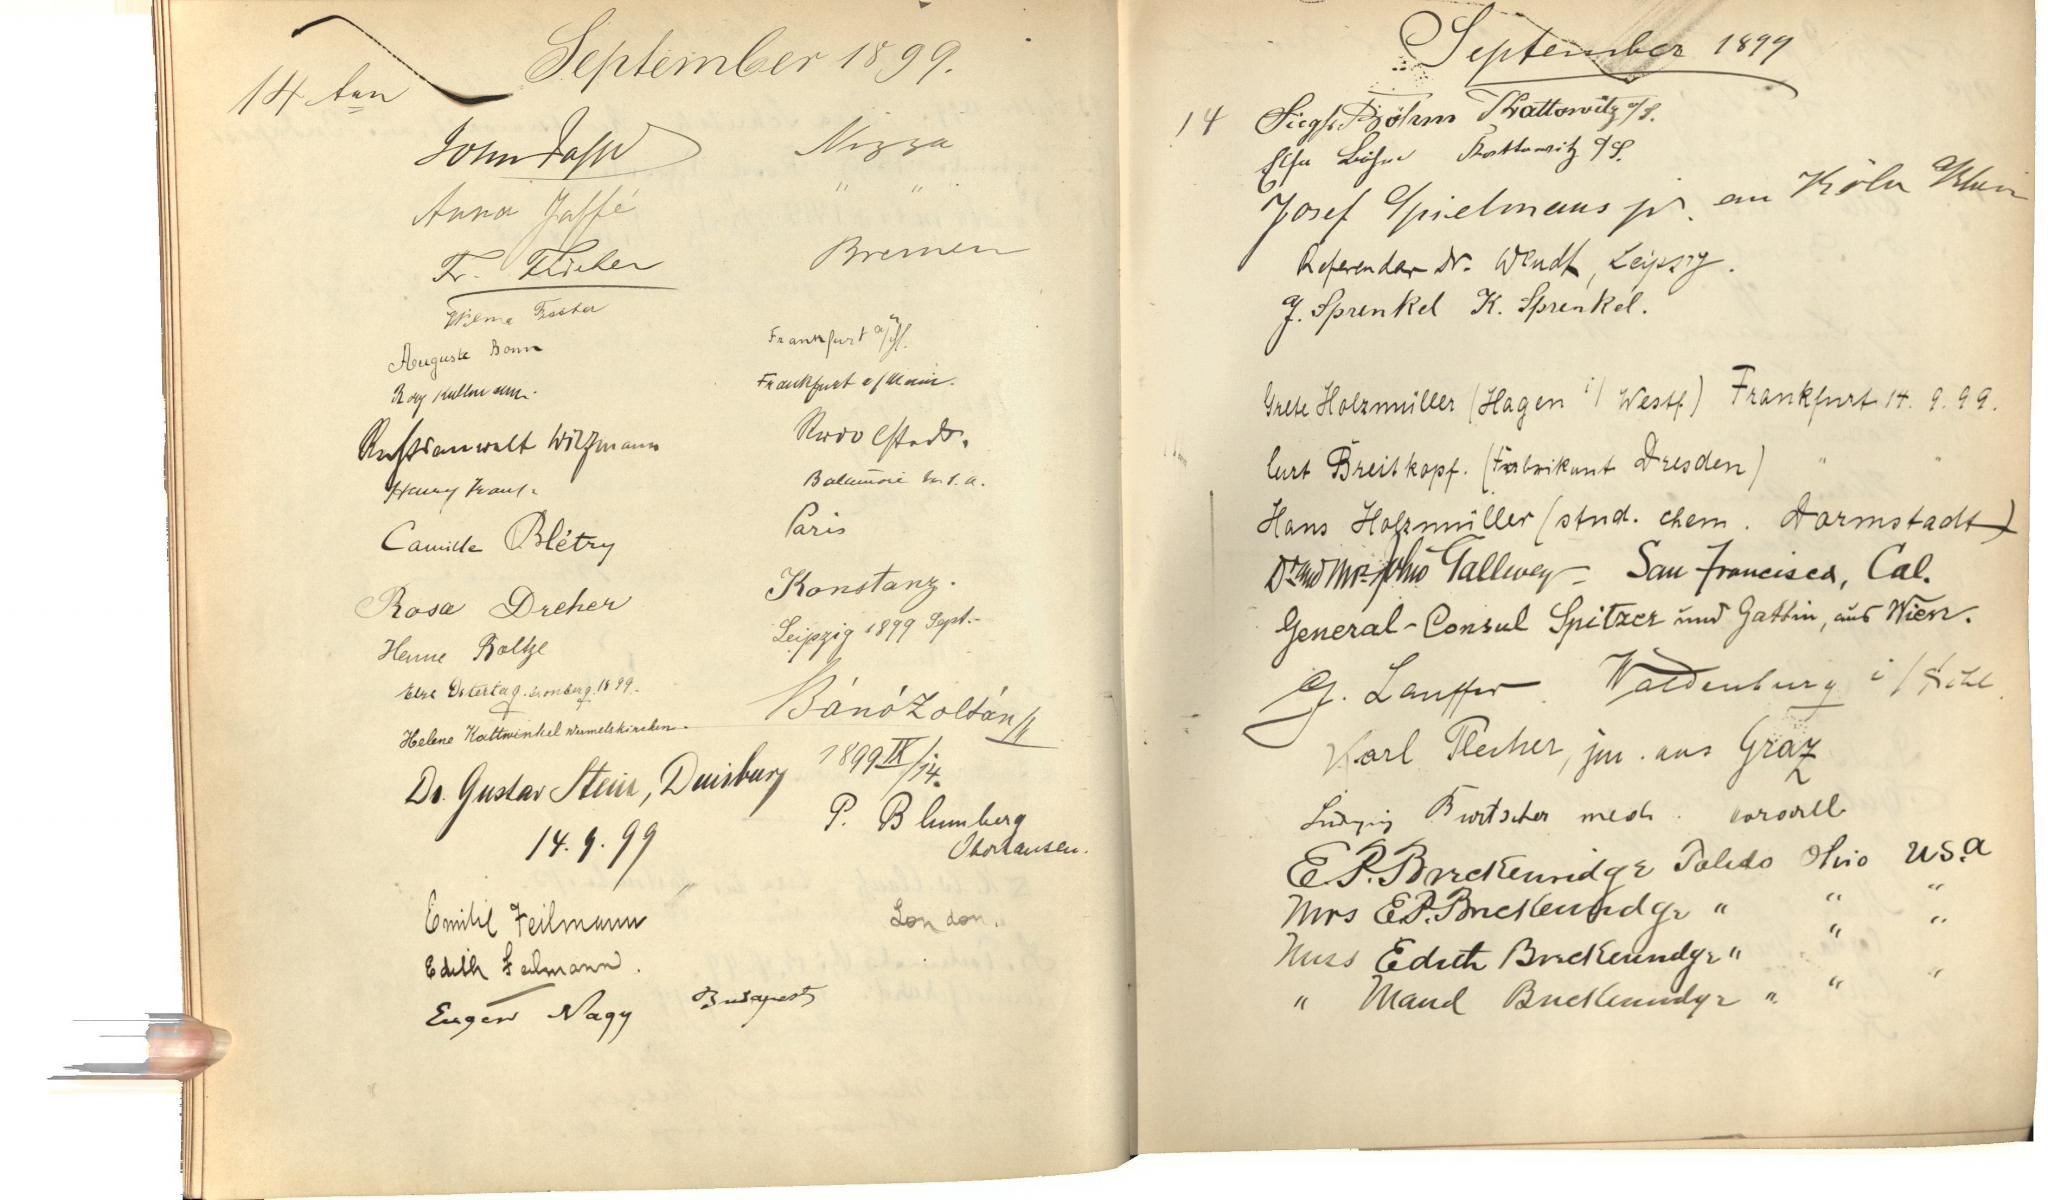 September 1899.
14ten
John Jaffé Nizza
Anna Jaffé " "
Fr. Bremen
Auguste Bonn Frankfurt a/M.
Kullmann. Frankfurt a/Main.
Rechtsanwalt Witzmann Rudolstadt.
Henry Baltimore U.S.A.
Camille Blétry Paris
Rosa Dreher Konstanz.
Henne Boltze Leipzig 1899 Sept.
Else Ostertag. Cronberg. 1899.
Bánó Zoltán
Helene Kattwinkel Wermelskirchen.
1899 IX/14.
Dr. Gustav Stein, Duisburg
14.9.99
P. Blumberg
Oberhausen.
Emihl Feilmann London.
Edith Feilmann.
Eugen Nagy Budapest
September 1899
14 Siegfr. Böhm Kattowitz o/S.
Böhm Kattowitz o/S.
Josef Spielmans jr. Köln a/Rhein
Referendar Dr. Wendt, Leipzig.
J. Sprenkel K. Sprenkel.
Grete Holzmüller (Hagen i/ Westf.) Frankfurt 14. 9. 99.
Curt Breitkopf. (Fabrikant Dresden) " "
Hans Holzmüller (stud. chem. Darmstadt)
Dr and Mrs John Gallwey - San Francisco, Cal.
General-Consul Spitzer und Gattin, aus Wien.
G. Lauffer Waldenburg i/Schl.
Karl Flecher, jun. aus Graz
Ludwig Burtscher mech.
E.P. Breckenridge Toledo Ohio U.S.A
Mrs E.P. Breckenridge " " "
Miss Edith Breckenridge " " "
" Maud Breckenridge " " "